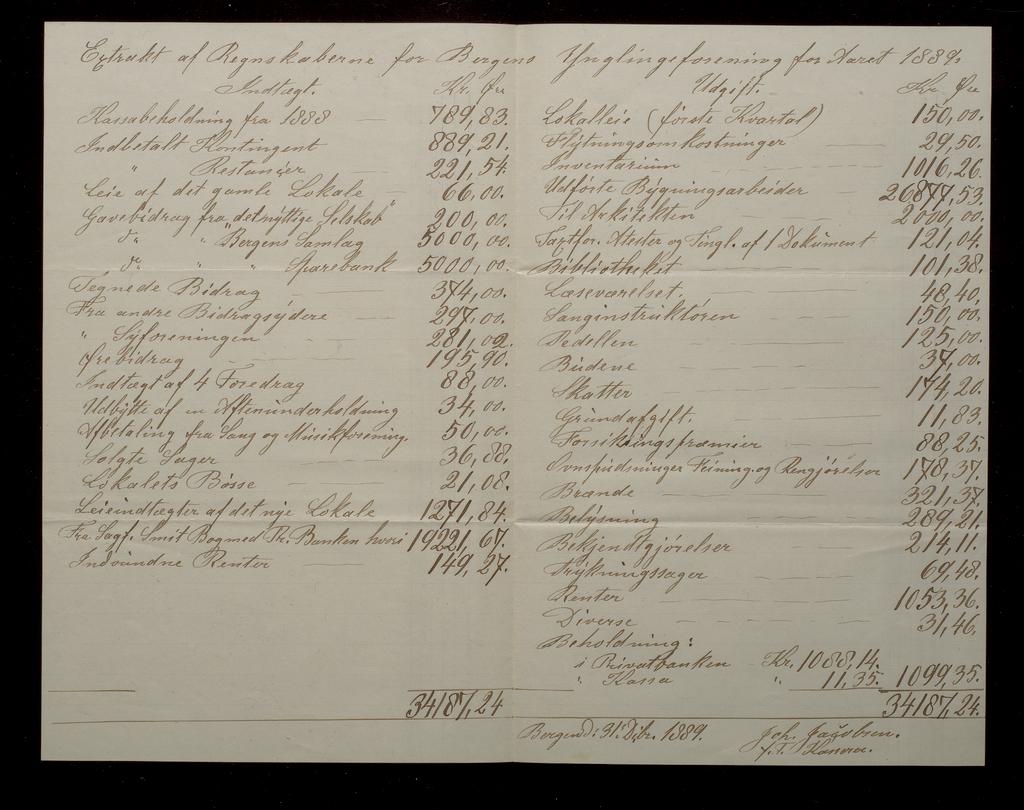 Extrakt af Regnskaberne for Bergens Ynglingeforening for Aaret 1889.
Indtægt. Kr. Øre
Kassabeholdning fra 1888 — 789,83.
Indbetalt Kontingent 889,21.
" Restancer — 221,54.
Leie af det gamle Lokale — 66,00.
Gavebidrag fra "det nyttige Selskab" 200,00.
do. " "Bergens Samlag 5000,00.
do. " " Sparebank 5000,00.
Tegnede Bidrag — 374,00.
Fra andre Bidragsydere — 297,00.
" Syforeningen — 281,02.
Ørebidrag — 195,90.
Indtægt af 4 Foredrag 88,00.
Udbytte af en Aftenunderholdning 34,00.
Afbetaling fra Sang og Musikforening. 50,00.
Solgte Sager — 36,88.
Lokalets Bøsse — 21,08.
Leieindtægter af det nye Lokale 1271,84.
Fra Sagf. Smit Bogmed Pr. Banken hvori 19221,67.
Indvundne Renter — 149,27.
34187,24
Udgift. Kr. Øre
Lokalleie (første Kvartal) 150,00.
Flytningsomkostninger — 29,50.
Inventarium — 1016,26.
Udførte Bygningsarbeider — 26877,53.
Til Arkitekten — 2000,00.
Taxtfor. Atester og Tingl. af 1 Dokument 121,04.
Bibliotheket — 101,38.
Læseværelset. — 48,40.
Sanginstruktøren — 150,00.
Pedellen — 125,00.
Budene — 37,00.
Skatter — 174,20.
Grundafgift. — 11,83.
Forsikringspræmier — 88,25.
Feining. og Rengjørelser 178,37.
Brænde — 321,37.
Belysning — 289,21.
Bekjendtgjørelser — 214,11.
Trykningssager — 69,48.
Renter — 1053,36.
Diverse — 31,46.
Beholdning:
i Privatbanken Kr. 1088,14.
" Kassa " 11,35. 1099,35.
34187,24.
Bergen d: 31. Dcbr. 1889. Joh. Jacobsen.
f. T. Kasserer.